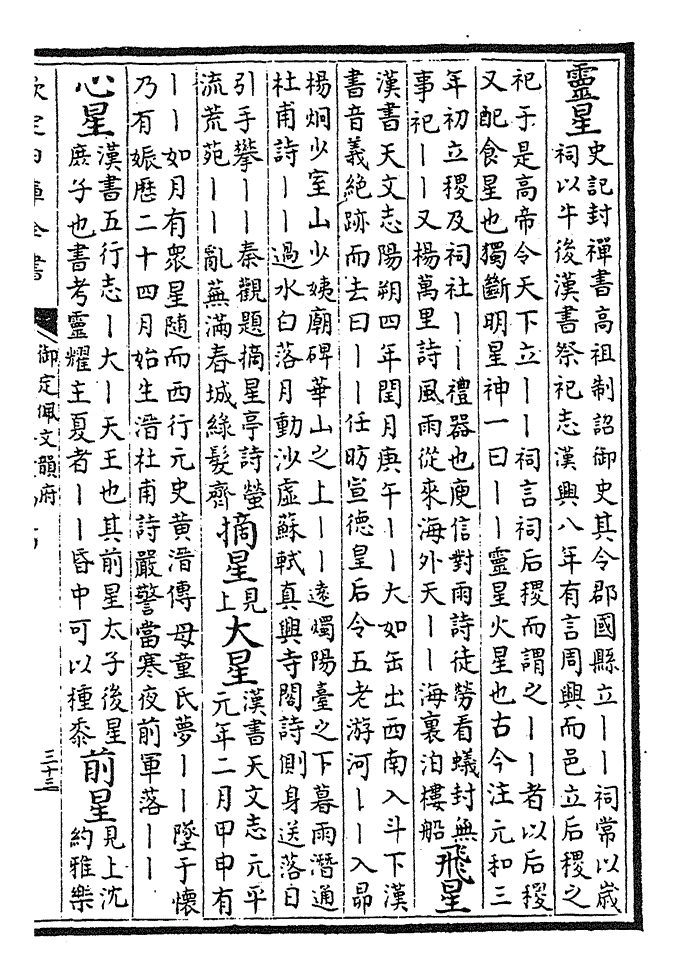 靈星史記封禪書高祖制詔御史其令郡國縣立丨丨祠常以歲
祠以牛後漢書祭祀志漢興八年有言周興而邑立后稷之
祀于是高帝令天下立丨丨祠言祠后稷而謂之丨丨者以后稷
又配食星也獨斷明星神一曰丨丨靈星火星也古今注元和三
年初立稷及祠社丨丨禮器也庾信對雨詩徒勞看蟻封無
事祀丨丨又楊萬里詩風雨從來海外天丨丨海裏泊樓船飛星
漢書天文志陽朔四年閏月庚午丨丨大如缶出西南入斗下漢
書音義絶跡而去曰丨丨任昉宣德皇后令五老游河丨丨入昴
楊炯少室山少姨廟碑華山之上丨丨遠燭陽臺之下暮雨潛通
杜甫詩丨丨過水白落月動沙虚蘇軾真興寺閣詩側身送落日
引手攀丨丨秦觀題摘星亭詩螢
流荒苑丨丨亂蕪滿春城綠髮齊摘星見上大星漢書天文志元平
元年二月甲申有
丨丨如月有衆星随而西行元史黄溍傳母童氏夢丨丨墜于懷
乃有娠歴二十四月始生溍杜甫詩嚴警當寒夜前軍落丨丨
心星漢書五行志丨大丨天王也其前星太子後星
庶子也書考靈耀主夏者丨丨昏中可以種黍前星見上沈
約雅樂
欽定四庫全書
御定佩文韻府
三十三